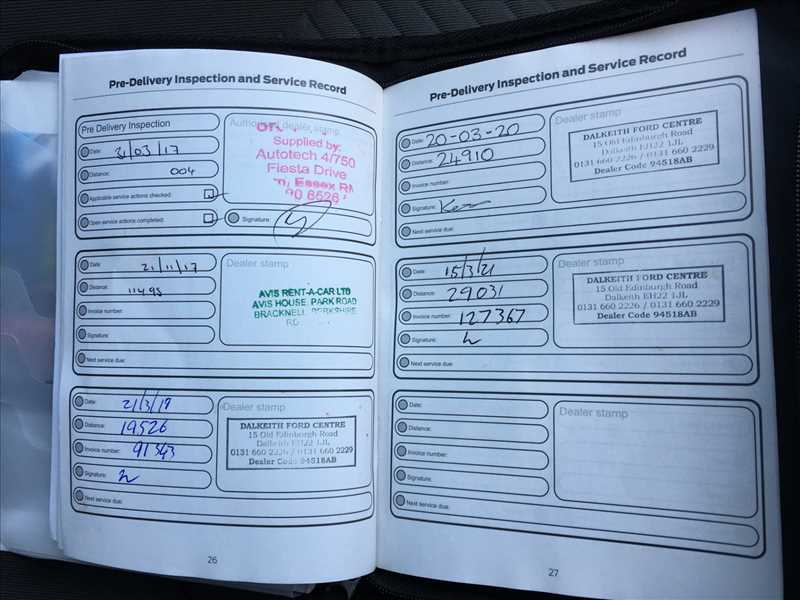 Pre-Delivery Inspection and Service Record
Pre Delivery Inspection
Date: 31/03/17
Distance: 004
Applicable service actions checked:
Open service actions completed:
Authorised dealer stamp
Supplied by:
Autotech 4/750
Fiesta Drive
Essex RM
8528
Signature:
Date: 21/11/17
Distance: 11495
Invoice number:
Signature:
Next service due:
Dealer stamp
AVIS RENT-A-CAR LTD
AVIS HOUSE, PARK ROAD
BRACKNELL, BERKSHIRE
Date: 21/3/19
Distance: 19526
Invoice number: 91343
Signature:
Next service due:
Dealer stamp
DALKEITH FORD CENTRE
15 Old Edinburgh Road
Dalkeith EH22 1JL
0131 660 2226 / 0131 660 2229
Dealer Code 94518AB
26
Pre-Delivery Inspection and Service Record
Date: 20-03-20
Distance: 24910
Invoice number:
Signature:
Next service due:
Dealer stamp
DALKEITH FORD CENTRE
15 Old Edinburgh Road
Dalkeith EH22 1JL
0131 660 2226 / 0131 660 2229
Dealer Code 94518AB
Date: 15/3/21
Distance: 29031
Invoice number: 127367
Signature:
Next service due:
Dealer stamp
DALKEITH FORD CENTRE
15 Old Edinburgh Road
Dalkeith EH22 1JL
0131 660 2226 / 0131 660 2229
Dealer Code 94518AB
Date:
Distance:
Invoice number:
Signature:
Next service due:
Dealer stamp
27